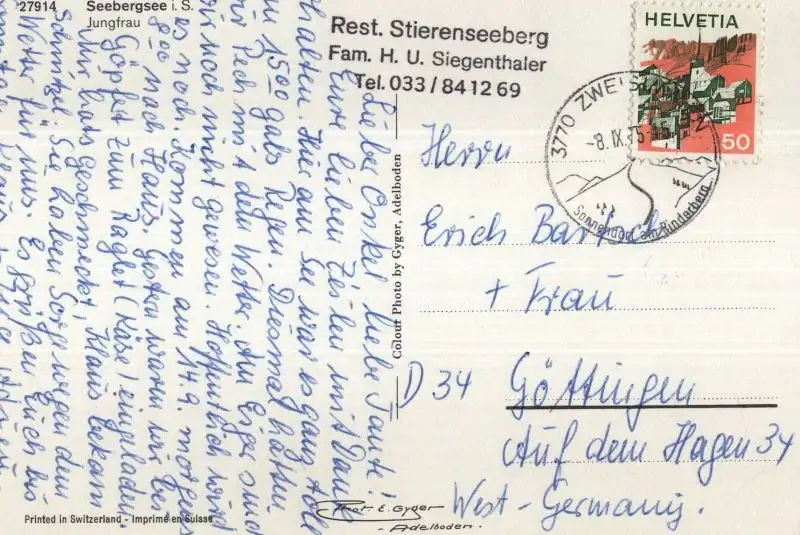 27914 Seebergsee i. S.
Jungfrau
Rest. Stierenseeberg
Fam. H. U. Siegenthaler
Tel. 033 / 84 12 69
HELVETIA
50
3770 ZWEISIMMEN
-8. IX. 75
Sonnendorf am Rinderberg
Lieber Onkel liebe Tante!
Eure lieben Zeilen mit Dank
halten. Hier am See war es ganz toll
in 1500 gabs Regen. Diesmal hatten
wir Pech mit dem Wetter. Am Eiger sind
wir noch nicht gewesen. Hoffentlich wird
es noch. Kommen am 14.9. morgens
800 nach Haus. Gestern waren wir bei
Göpfert zum Raglet (Käse) eingeladen.
Uns hats geschmeckt, Klaus bekam
Schnitzel. Sie haben Sorge wegen dem
Wetter für uns. Es grüßen Euch bis
Klaus
Herrn
Erich Bartsch
+ Frau
D 34 Göttingen
Auf dem Hagen 34
West-Germany.
Colour Photo by Gyger, Adelboden
Printed in Switzerland - Imprimé en Suisse
Phot. E. Gyger
- Adelboden -